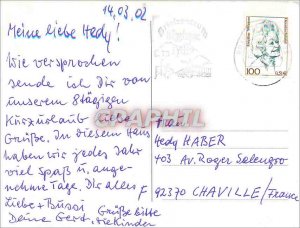 14.03.02
Meine liebe Hedy!
Wie versprochen
sende ich Dir von
unserem 8tägigen
Kurzurlaub liebe
Grüße. In diesem Haus
haben wir jedes Jahr
viel Spaß u. ange-
nehme Tage. Dir alles
Liebe + Bussi
Deine Gert. Grüße bitte
die Kinder
100
Hedy HABER
403 Av. Roger Salengro
F 92370 CHAVILLE/France